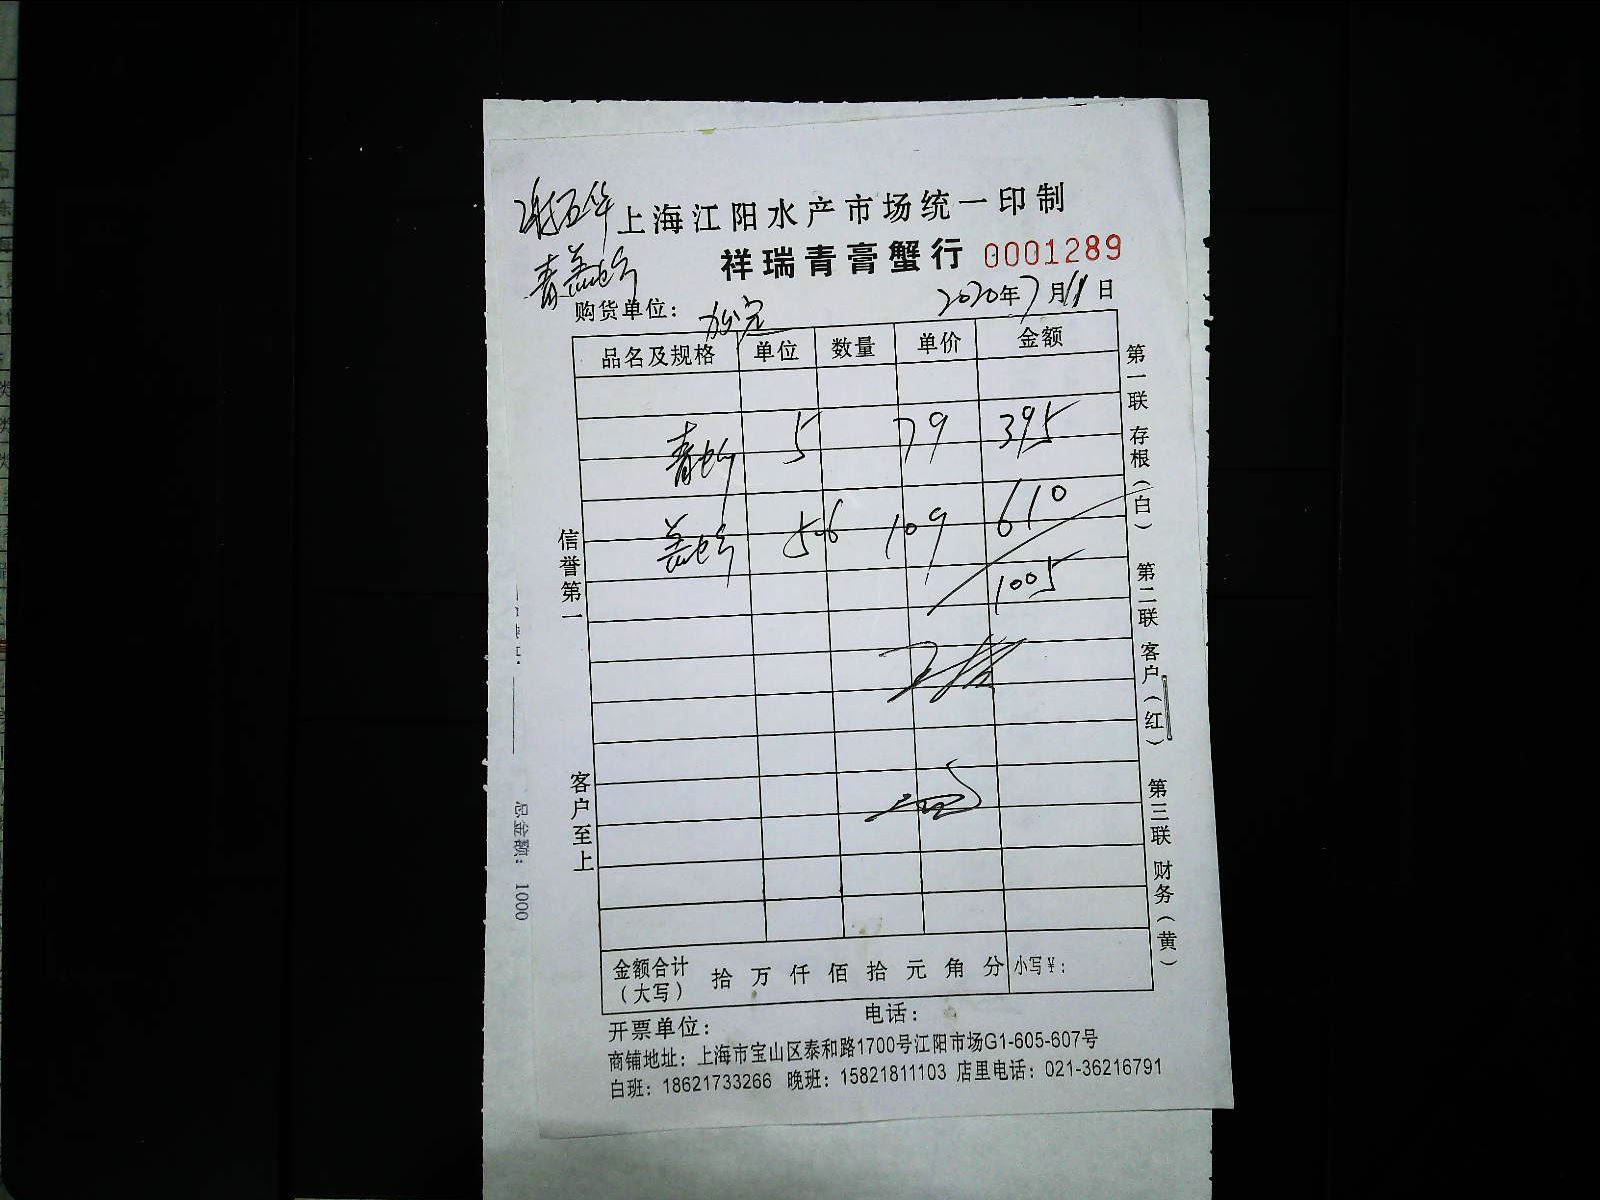 上海江阳水产市场统一印制
祥瑞青膏蟹行 0001289
购货单位： 2020年7月11日
品名及规格 单位 数量 单价 金额
青 5 79 395
5.6 109 610
1005
金额合计（大写） 拾 万 仟 佰 拾 元 角 分 小写￥：
开票单位： 电话：
商铺地址：上海市宝山区泰和路1700号江阳市场G1-605-607号
白班：18621733266 晚班：15821811103 店里电话：021-36216791
信誉第一
客户至上
第一联 存根（白） 第二联 客户（红） 第三联 财务（黄）
总金额： 1000